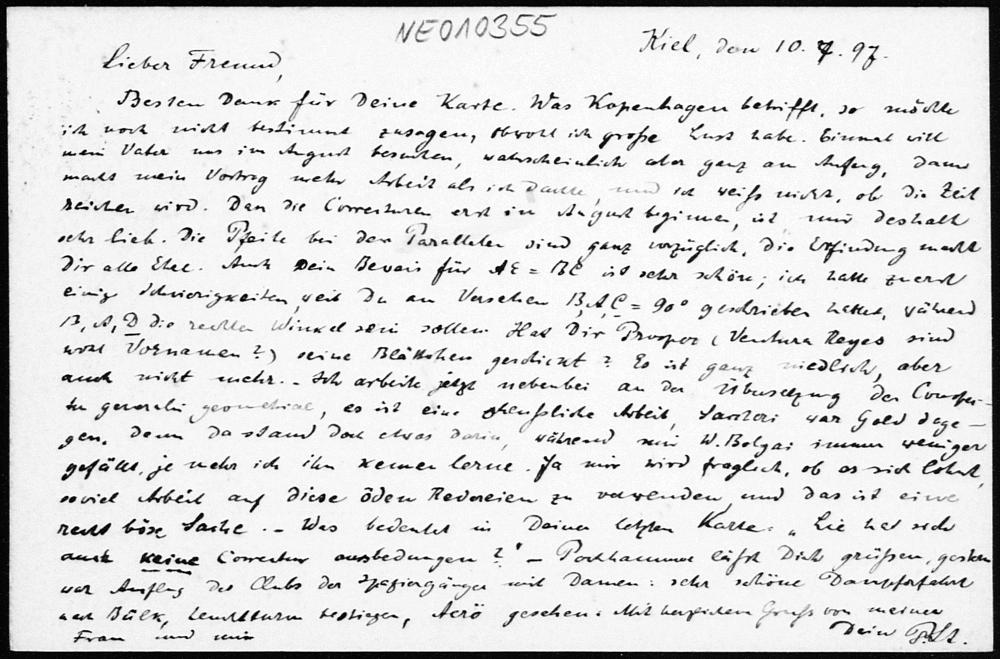 NE010355
Kiel, den 10. 7. 97.
Lieber Freund,
Besten Dank für Deine Karte. Was Kopenhagen betrifft, so möchte
ich noch nicht bestimmt zusagen, obwohl ich große Lust habe. Einmal will
mein Vater uns im August besuchen, wahrscheinlich aber ganz am Anfang, dann
macht mein Vortrag mehr Arbeit als ich dachte, und ich weiss nicht, ob die Zeit
reichen wird. Dass die Correcturen erst im August beginnen, ist mir deshalb
sehr lieb. Die Pfeile bei den Parallelen sind ganz vorzüglich, die Erfindung macht
Dir alle Ehre. Auch Dein Beweis für AE = BE ist sehr schön; ich hatte zuerst
einige Schwierigkeiten, weil Du aus Versehen B, A, C = 90° geschrieben hattest, während
B, A, D die rechten Winkel sein sollen. Hat Dir Prosper (Ventura Reyes sind
wohl Vornamen?) seine Blättchen geschickt? Es ist ganz niedlich, aber
auch nicht mehr. – Ich arbeite jetzt nebenbei an der Übersetzung des Conspec-
tu generali geometriae, es ist eine scheußliche Arbeit, Saccheri war Gold dage-
gen, denn da stand doch etwas darin, während mir W. Bolyai immer weniger
gefällt, je mehr ich ihn kennen lerne. Ja mir wird fraglich, ob es sich lohnt,
soviel Arbeit auf diese öden Redereien zu verwenden, und das ist eine
recht böse Sache. – Was bedeutet in Deiner letzten Karte: „Lie hat sich
auch keine Correctur ausbedungen?" – Pochhammer läßt Dich grüßen, gestern
war Ausflug des Clubs der Spaziergänger mit Damen: sehr schöne Dampferfahrt
nach Bülk, Leuchtturm bestiegen, Aerö gesehen. Mit herzlichem Gruß von meiner
Frau und mir
Dein P. St.